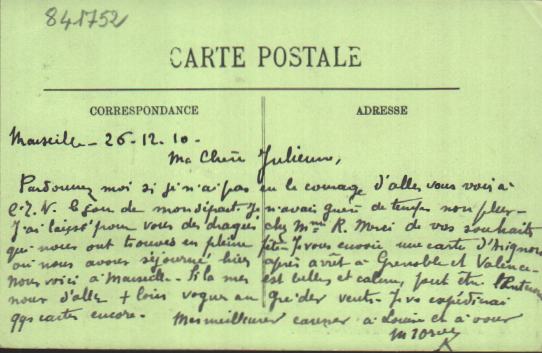 841752
CARTE POSTALE
CORRESPONDANCE
ADRESSE
Marseille - 26-12-10-
Ma Chère Julienne,
Pardonnez moi si je n'ai pas eu le courage d'aller vous voir à
le jour de mon départ. Je n'avais guère de temps non plus -
J'ai laissé pour vous des dragées chez Mme R. Merci de vos souhaits
qui nous ont trouvés en pleine fête. Je vous envoie une carte d'Avignon
où nous avons séjourné hier après arrêt à Grenoble et Valence -
nous voici à Marseille - Si la mer est belle et calme, peut être
nous d'aller + loin voguer au gré des vents - Je vs expédierai
qqs cartes encore. Mes meilleures caresses à Louise et à vous